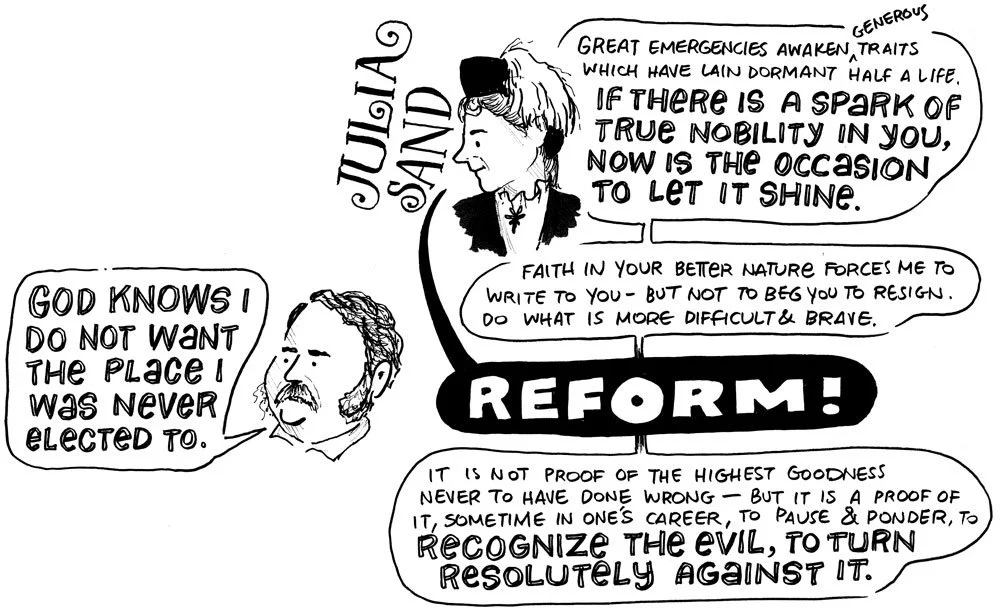 JULIA
SAND
GENEROUS
GREAT EMERGENCIES AWAKEN ^ TRAITS
WHICH HAVE LAIN DORMANT HALF A LIFE.
IF THERE IS A SPARK OF
TRUE NOBILITY IN YOU,
NOW IS THE OCCASION
TO LET IT SHINE.
FAITH IN YOUR BETTER NATURE FORCES ME TO
WRITE TO YOU – BUT NOT TO BEG YOU TO RESIGN.
DO WHAT IS MORE DIFFICULT & BRAVE.
GOD KNOWS I
DO NOT WANT
THE PLACE I
WAS NEVER
ELECTED TO.
REFORM!
IT IS NOT PROOF OF THE HIGHEST GOODNESS
NEVER TO HAVE DONE WRONG — BUT IT IS A PROOF OF
IT, SOMETIME IN ONE'S CAREER, TO PAUSE & PONDER, TO
RECOGNIZE THE EVIL, TO TURN
RESOLUTELY AGAINST IT.